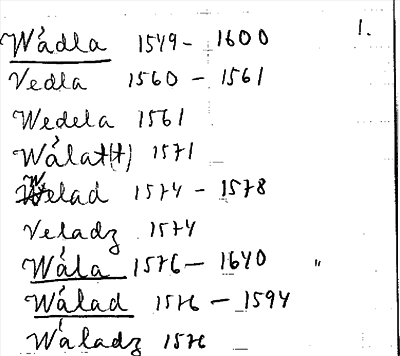 1.
Wådla 1549 - 1600
Vedla 1560 - 1561
Wedela 1561
Wålat(t) 1571
Welad 1574 - 1578
Veladz 1574
Wåla 1576 - 1640 "
Wålad 1576 - 1594
Wåladz 1576